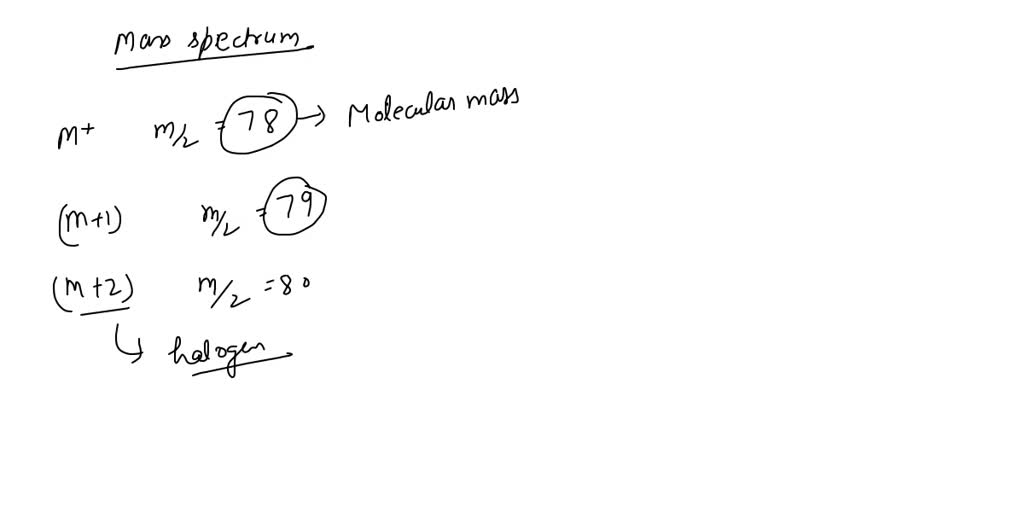 Mass spectrum
M+ m/z = 78 → Molecular mass
(m+1) m/z = 79
(m+2) m/z = 80
↳ halogen